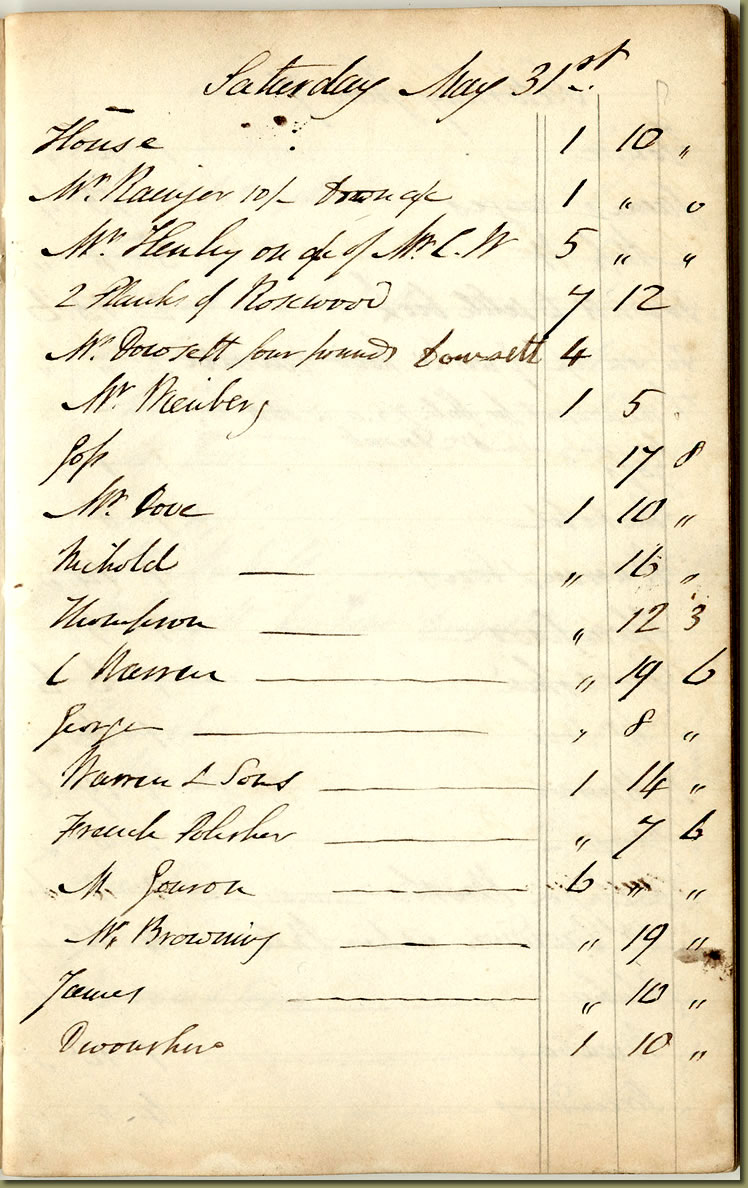 Saturday May 31st
House 1 10 "
Mr. Rainger 10/- Down a/c 1 " 0
Mr. Henley on a/c of Mr. C. W 5 " "
2 Planks of Rosewood 7 12
Mr. Dowsett four pounds Dowsett 4
Mr. 1 5
Goss 17 8
Mr. Dove 1 10 "
Nichold — " 16 "
Thompson — " 12 3
C Warren — " 19 6
George — " 8 "
Warren & Sons — 1 14 "
French Polisher — " 7 6
M. — 6 " "
Mr. Browning — " 19 "
James — " 10 "
Devonshere 1 10 "